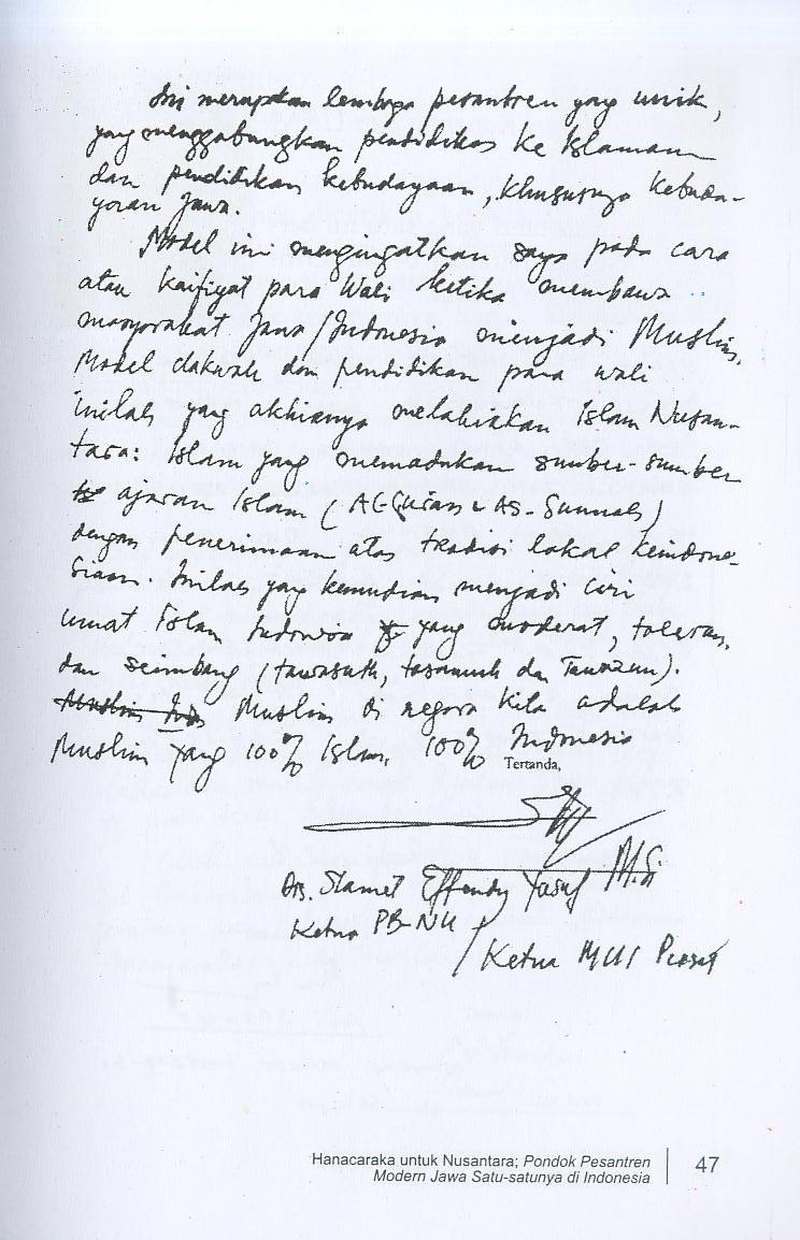 Ini merupakan lembaga pesantren yang unik,
yang menggabungkan pendidikan ke Islaman
dan pendidikan kebudayaan, khususnya kebuda-
yaan Jawa.
Model ini mengingatkan saya pada cara
atau kaifiyat para Wali ketika membawa
masyarakat Jawa/Indonesia menjadi Muslim.
Model dakwah dan pendidikan para wali
inilah yang akhirnya melahirkan Islam Nusan-
tara: Islam yang memadukan sumber-sumber
ajaran Islam (Al-Qur'an & As-Sunnah)
dengan penerimaan atas tradisi lokal keindone-
siaan. Inilah yang kemudian menjadi ciri
umat Islam Indonesia yang moderat, toleran,
dan seimbang (tawasuth, tasamuh dan Tawazun).
Muslim Indo Muslim di negara kita adalah
Muslim yang 100% Islam, 100% Indonesia
Tertanda,
Drs. Slamet Effendy Yusuf M.Si
Ketua PB-NU
/Ketua MUI Pusat
Hanacaraka untuk Nusantara; Pondok Pesantren
Modern Jawa Satu-satunya di Indonesia
47